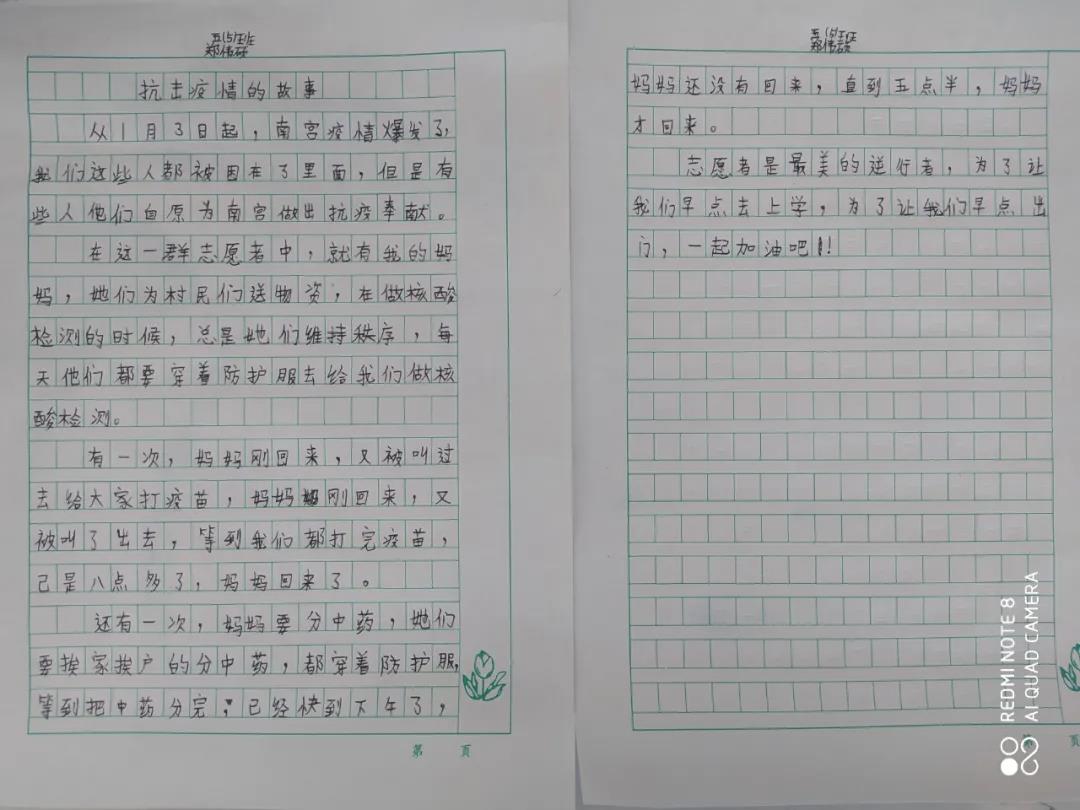 五(5)班
郑伟硕
抗击疫情的故事
从1月3日起，南宫疫情爆发了，
我们这些人都被困在了里面，但是有
些人他们自原为南宫做出抗疫奉献。
在这一群志愿者中，就有我的妈
妈，她们为村民们送物资，在做核酸
检测的时候，总是她们维持秩序，每
天他们都要穿着防护服去给我们做核
酸检测。
有一次，妈妈刚回来，又被叫过
去给大家打疫苗，妈妈刚回来，又
被叫了出去，等到我们都打完疫苗，
己是八点多了，妈妈回来了。
还有一次，妈妈要分中药，她们
要挨家挨户的分中药，都穿着防护服，
等到把中药分完，已经快到下午了，
第 页
五(5)班
郑伟硕
妈妈还没有回来，直到五点半，妈妈
才回来。
志愿者是最美的逆行者，为了让
我们早点去上学，为了让我们早点出
门，一起加油吧！!
第 页
REDMI NOTE 8
AI QUAD CAMERA